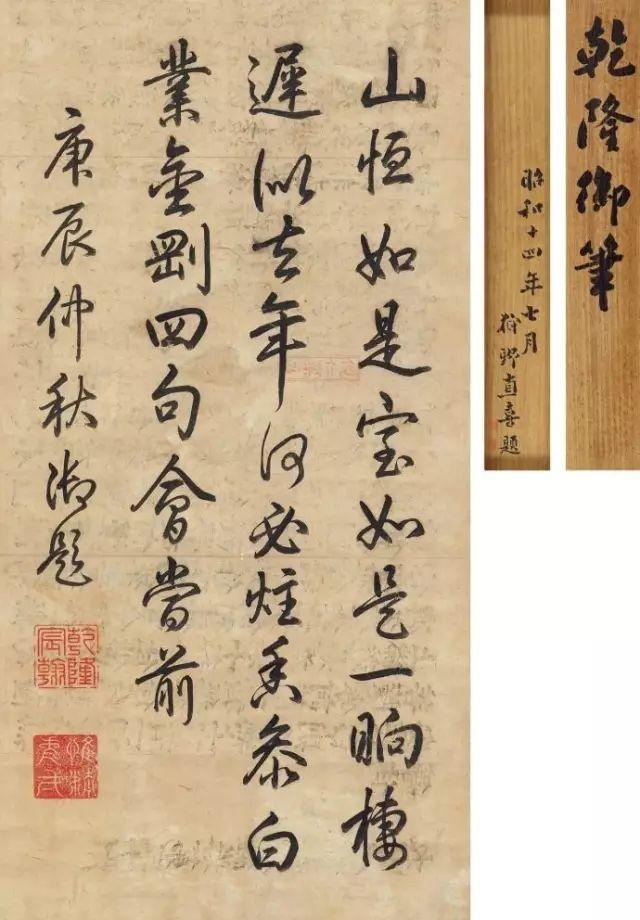 山恒如是室如是一晌棲
遲似去年何必炷香參白
業金剛四句會當前
庚辰仲秋御題
乾隆宸翰
乾隆御筆
昭和十四年七月
狩野直喜題